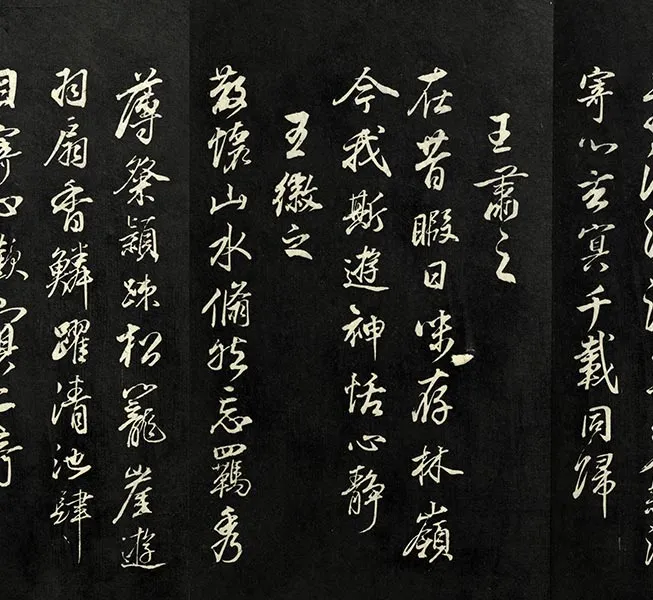 寄心玄冥千載同歸
王肅之
在昔暇日味存林嶺
今我斯遊神恬心靜
王徽之
散懷山水翛然忘羈秀
薄粲穎疎松籠崖遊
羽扇香鱗躍清池肆
目寄心歡冥二奇